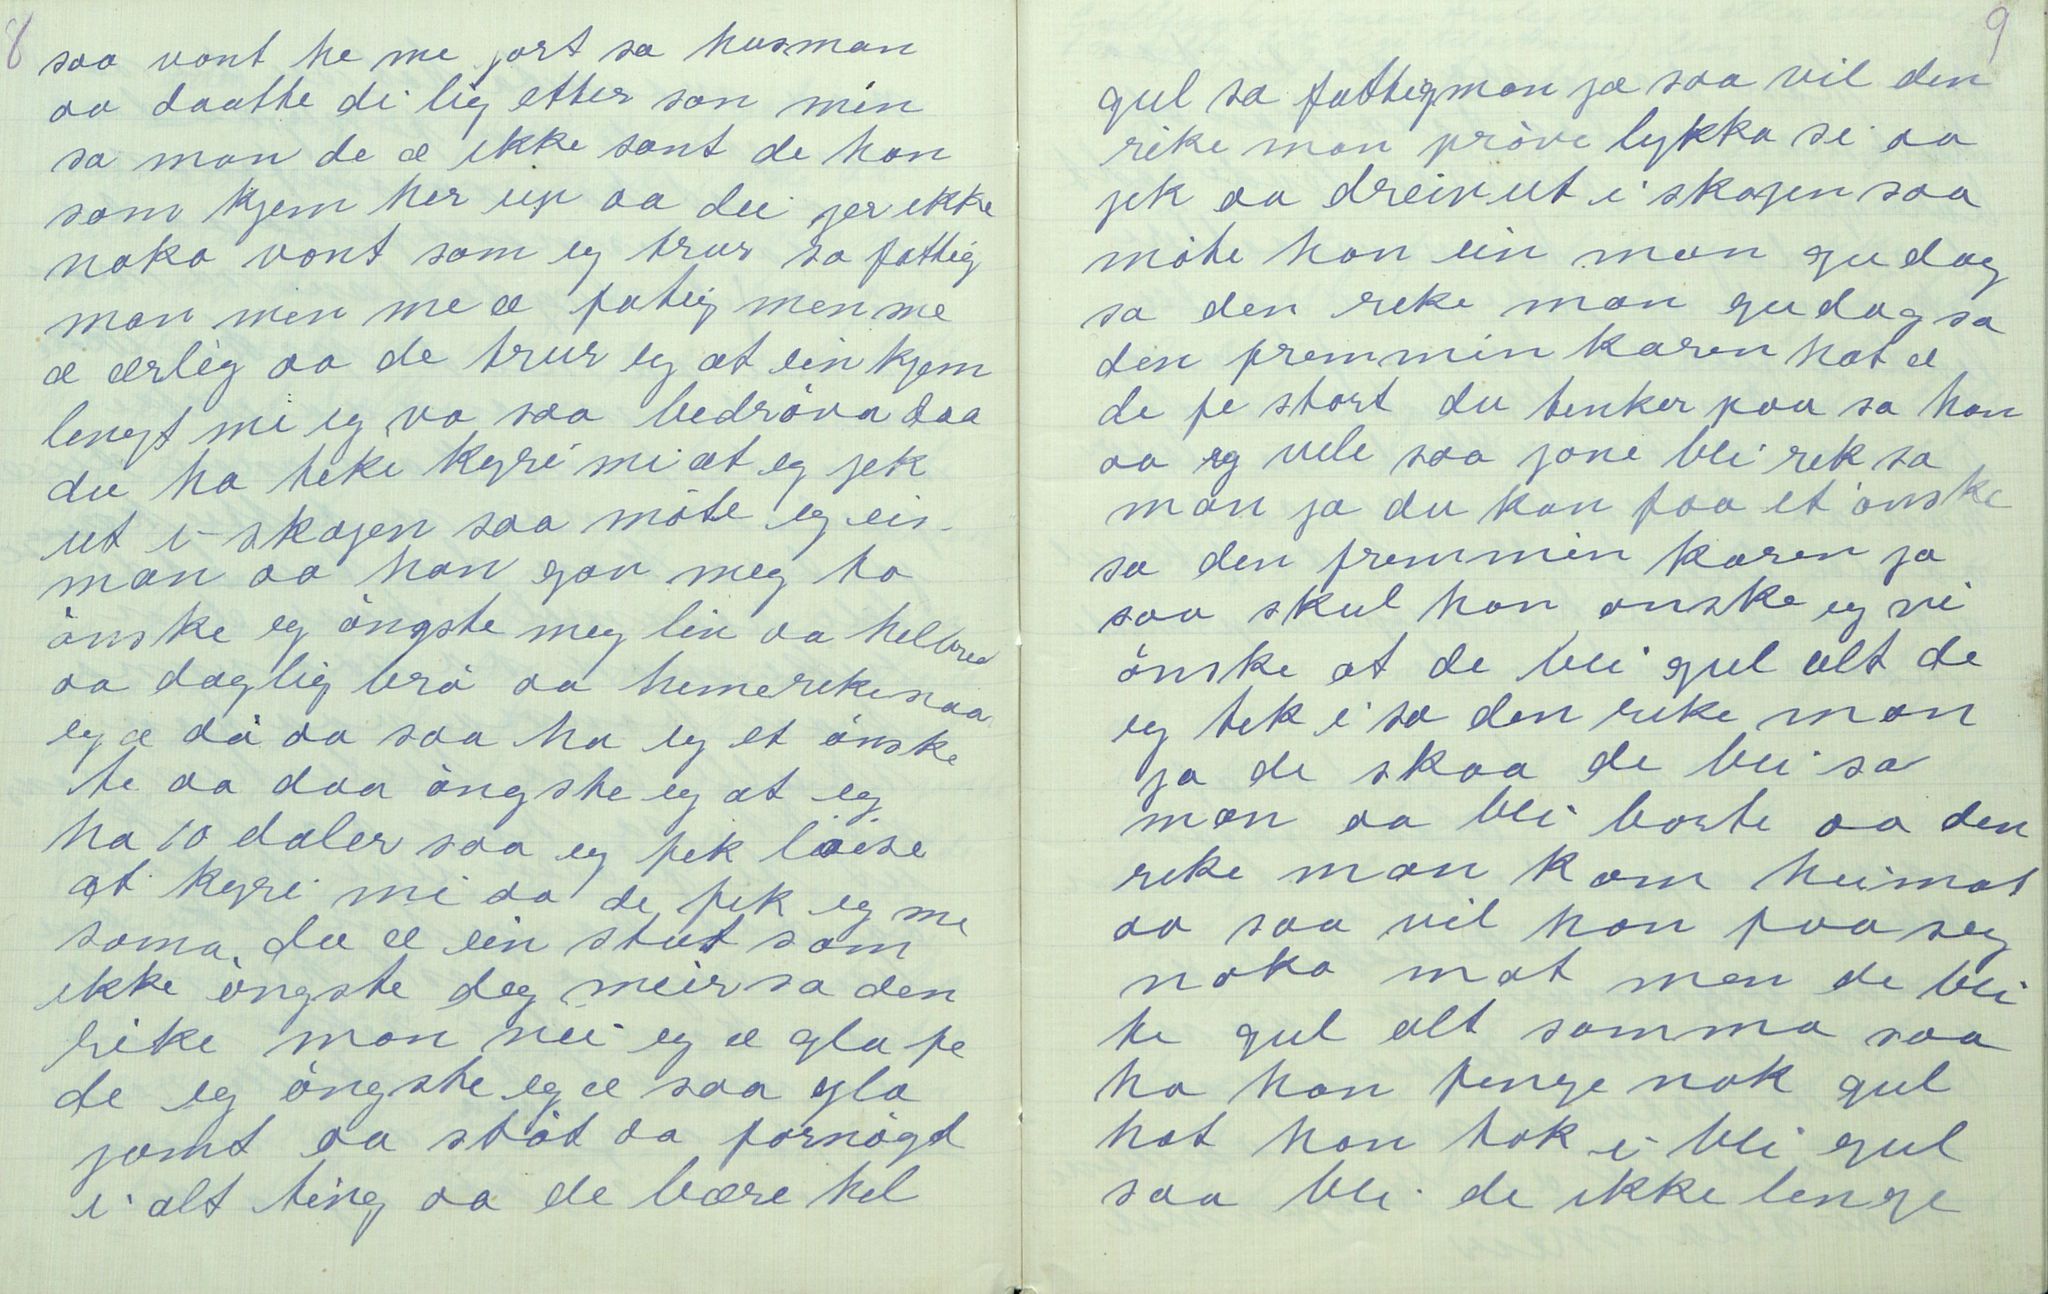 8
saa vont he me jort sa husman
aa daatte di lig etter son min
sa man de æ ikke sant de han
som kjem her up aa dei jer ikke
noko vont som eg trur sa fattig
man men me æ fatig men me
æ ærlig aa de trur eg at ein kjem
lengst mi eg va saa bedröva daa
du ha teke kyri mi at eg jek
ut i skogen saa möte eg ein
man aa han gav meg to
önske eg öngste meg liv aa helbred
aa daglig brö aa himerike naa
eg æ dö aa saa ha eg et önske
te aa daa öngste eg at eg
ha 10 daler saa eg fek löise
at kyri mi aa de fek eg me
soma. du æ ein stut som
ikke öngste deg meir sa den
rike man nei eg æ gla fe
de eg öngste eg æ saa gla
jamt aa stöt aa fornögd
i alt ting aa de bære hel
9
gul sa fattigman ja saa vil den
rike man pröve lykka si aa
jek aa dreiv ut i skogen saa
möte han ein man gudag
sa den rike man gudag sa
den fremmin karen hot æ
de fe stort du tenker paa sa han
aa eg vile saa jone bli rik sa
man ja du kan faa et önske
sa den fremmin karen ja
saa skul han onske eg vi
önske at de bli gul alt de
eg tek i sa den rike man
ja de skaa de bli sa
man aa bli borte aa den
rike man kom heimat
aa saa vil han faa seg
noko mat men de bli
te gul alt somma saa
ha han penge nok gul
hot han tok i bli gul
saa bli de ikke lenge